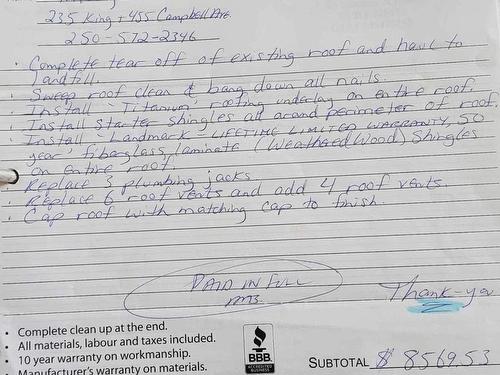 235 King + 455 Campbell Ave.
250-572-2346
• Complete tear off of existing roof and haul to
landfill.
• Sweep roof clean & bang down all nails.
• Install 'Titanium' roofing underlay on entire roof.
• Install starter shingles all around perimeter of roof.
• Install 'Landmark' LIFETIME LIMITED WARRANTY, 50
year, fiberglass laminate (Weathered Wood) Shingles
on entire roof.
• Replace 3 plumbing jacks.
• Replace 6 roof vents and add 4 roof vents.
• Cap roof with matching cap to finish.
PAID IN FULL
Thank-you
• Complete clean up at the end.
• All materials, labour and taxes included.
• 10 year warranty on workmanship.
• Manufacturer's warranty on materials.
BBB
ACCREDITED
BUSINESS
SUBTOTAL $ 8569.53